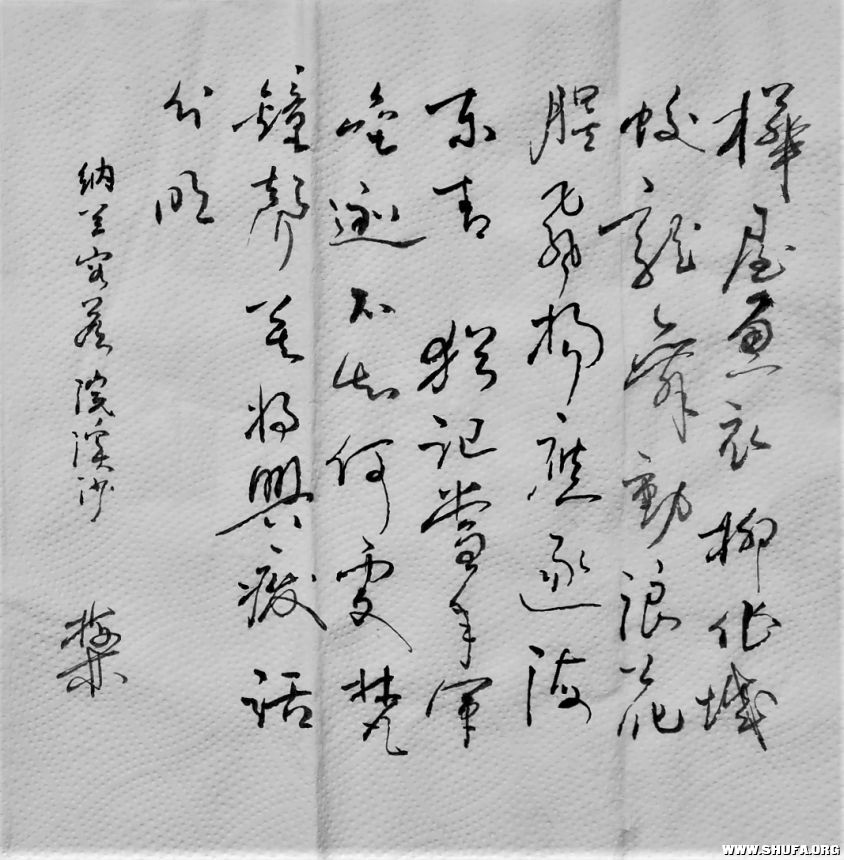 樺屋魚衣柳作城
蛟龍舞動浪花
腥飛揚應逐海
東青 猶記當年軍
壘迹不知何處梵
鐘聲莫將興廢話
分明
納蘭容若浣溪沙
WWW.SHUFA.ORG